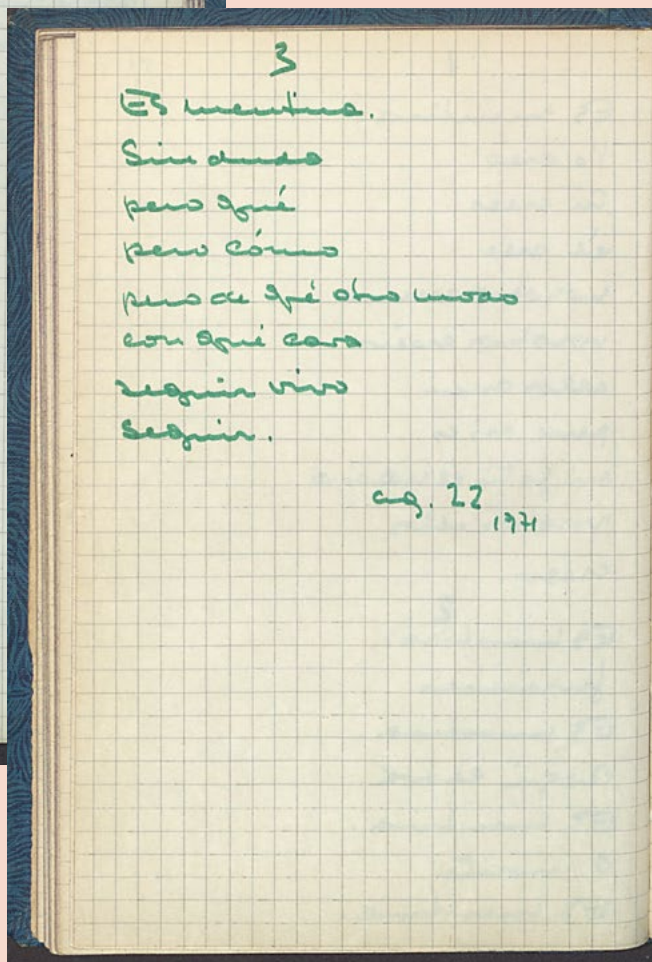 3
Es mentira.
Sin duda
pero qué
pero cómo
pero de qué otro modo
con qué cara
seguir vivo
seguir.
ag. 22
1971